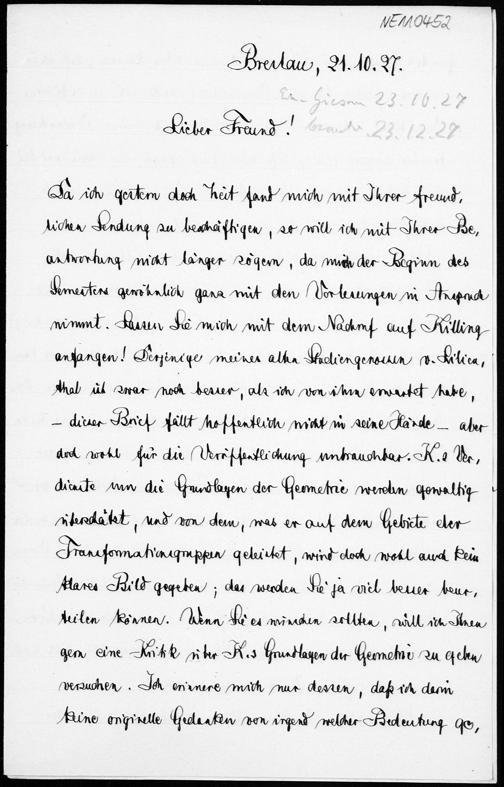 NE110452
Breslau, 21.10.27.
23.10.27
Lieber Freund!
23.12.27
Da ich gestern doch Zeit fand mich mit Ihrer freund,
lichen Sendung zu beschäftigen, so will ich mit Ihrer Be,
antwortung nicht länger zögern, da mich der Beginn des
Semesters gewöhnlich ganz mit den Vorlesungen in Anspruch
nimmt. Lassen Sie mich mit dem Nachruf auf Killing
anfangen! Derjenige meines alten Studiengenossen v. Lilien,
thal ist zwar noch besser, als ich von ihm erwartet habe,
– dieser Brief fällt hoffentlich nicht in seine Hände – aber
doch wohl für die Veröffentlichung unbrauchbar. K.s Ver,
dienste um die Grundlagen der Geometrie werden gewaltig
überschätzt, und von dem, was er auf dem Gebiete der
Transformationsgruppen geleistet, wird doch wohl auch kein
klares Bild gegeben; das werden Sie ja viel besser beur,
teilen können. Wenn Sie es wünschen sollten, will ich Ihnen
gern eine Kritik über K.s Grundlagen der Geometrie zu geben
versuchen. Ich erinnere mich nur dessen, daß ich darin
keine originelle Gedanken von irgend welcher Bedeutung ge,